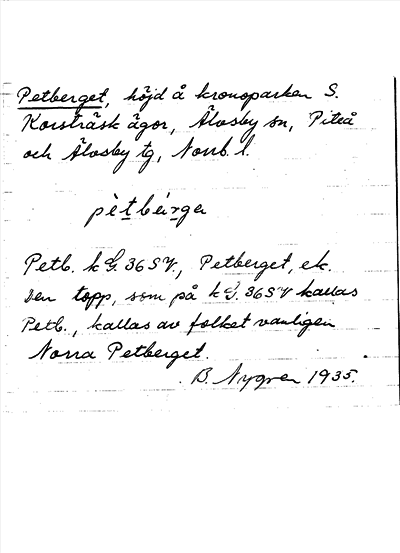 Petberget, höjd å kronoparken S.
Korsträsk ägor, Älvsby sn, Piteå
och Älvsby tg, Norrb. l.
pètbèrge
Petb. k G. 36 SV, Petberget, ek.
Den topp, som på k G. 36 SV kallas
Petb., kallas av folket vanligen
Norra Petberget.
B. Nygren 1935.